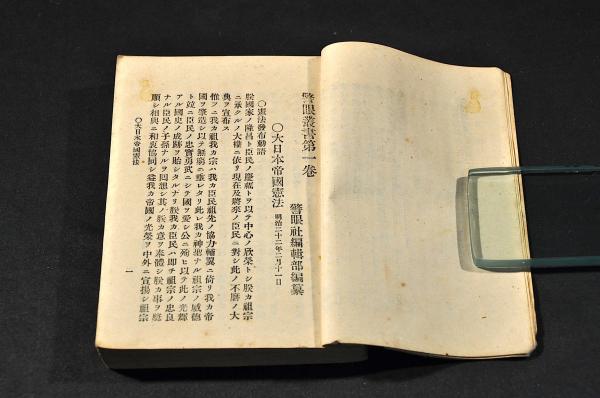 警眼叢書第一卷
警眼社編輯部編纂
〇大日本帝國憲法 明治二十二年二月十一日
〇憲法發布勅語
朕國家ノ隆昌ト臣民ノ慶福トヲ以テ中心ノ欣榮トシ朕カ祖宗
ニ承クルノ大權ニ依リ現在及將來ノ臣民ニ對シ此ノ不磨ノ大
典ヲ宣布ス
惟フニ我カ祖我カ宗ハ我カ臣民祖先ノ協力輔翼ニ倚リ我カ帝
國ヲ肇造シ以テ無窮ニ垂レタリ此レ我カ神聖ナル祖宗ノ威德
ト竝ニ臣民ノ忠實勇武ニシテ國ヲ愛シ公ニ殉ヒ以テ此ノ光輝
アル國史ノ成跡ヲ貽シタルナリ朕我カ臣民ハ卽チ祖宗ノ忠良
ナル臣民ノ子孫ナルヲ回想シ其ノ朕カ意ヲ奉體シ朕カ事ヲ奬
順シ相與ニ和衷協同シ益我カ帝國ノ光榮ヲ中外ニ宣揚シ祖宗
〇大日本帝國憲法
一